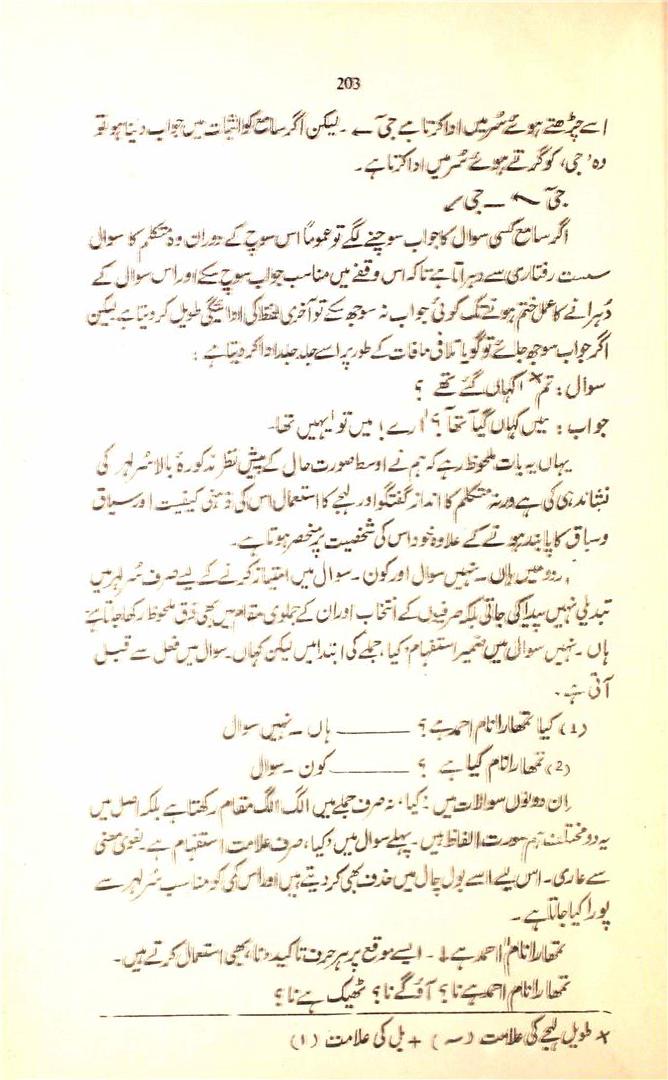 203
اسے چڑھتے ہوئے سُر میں ادا کرتا ہے جیٓ ← ۔ لیکن اگر سامع کو اثبات میں جواب دینا ہو تو
وہ ’جی‘ کو گرتے ہوئے سُر میں ادا کرتا ہے۔
جیٓ ↖ — جی ↙
اگر سامع کسی سوال کا جواب سوچنے لگے تو عموماً اس سوچ کے دوران وہ متکلم کا سوال
سست رفتاری سے دہراتا ہے تاکہ اس وقفے میں مناسب جواب سوچ سکے اور اس سوال کے
دُہرانے کا عمل ختم ہونے تک کوئی جواب نہ سوجھ سکے تو آخری لفظ کی ادائیگی طویل کر دیتا ہے لیکن
اگر جواب سوجھ جائے تو گویا تلافی مافات کے طور پر اسے جلد جلد ادا کر دیتا ہے :
سوال : تم × کہاں گئے تھے ؟
جواب : میں کہاں گیا تھآ ؟ ارے ! میں تو یہیں تھا۔
یہاں یہ بات ملحوظ رہے کہ ہم نے اوسط صورت حال کے پیش نظر مذکورۂ بالا سُر لہر کی
نشاندہی کی ہے ورنہ متکلم کا انداز گفتگو اور لہجے کا استعمال اس کی ذہنی کیفیت اور سیاق
و سباق کا پابند ہونے کے علاوہ خود اس کی شخصیت پر منحصر ہوتا ہے۔
اردو میں ہاں ۔ نہیں سوال اور کون ۔ سوال میں امتیاز کرنے کے لیے صرف سُر لہر میں
تبدیلی نہیں پیدا کی جاتی بلکہ صرفیوں کے انتخاب اور ان کے جملوی مقام میں بھی فرق ملحوظ رکھا جاتا ہے
ہاں ۔ نہیں سوال میں ضمیر استفہام ’کیا‘ جملے کی ابتدا میں لیکن کہاں ۔ سوال میں فعل سے قبل
آتی ہے۔
(1) کیا تمھارا نام احمد ہے ؟ ——— ہاں ۔ نہیں سوال
(2) تمھارا نام کیا ہے ؟ ——— کون ۔ سوال
اِن دونوں سوالات میں ’کیا‘ نہ صرف جملے میں الگ الگ مقام رکھتا ہے بلکہ اصل میں
یہ دو مختلف ہم صورت الفاظ ہیں۔ پہلے سوال میں ’کیا‘ صرف علامت استفہام ہے۔ لغوی معنی
سے عاری۔ اس لیے اسے بول چال میں حذف بھی کر دیتے ہیں اور اس کی کو مناسب سُر لہر سے
پورا کیا جاتا ہے۔
تمھارا نام ا احمد ہے ↓ ۔ ایسے موقع پر ہر حرف تاکید ’نا‘ بھی استعمال کرتے ہیں۔
تمھارا نام احمد ہے نا ؟ آؤ گے نا ؟ ٹھیک ہے نا ؟
× طویل لہجے کی علامت ( ~ ) + بل کی علامت (ا)